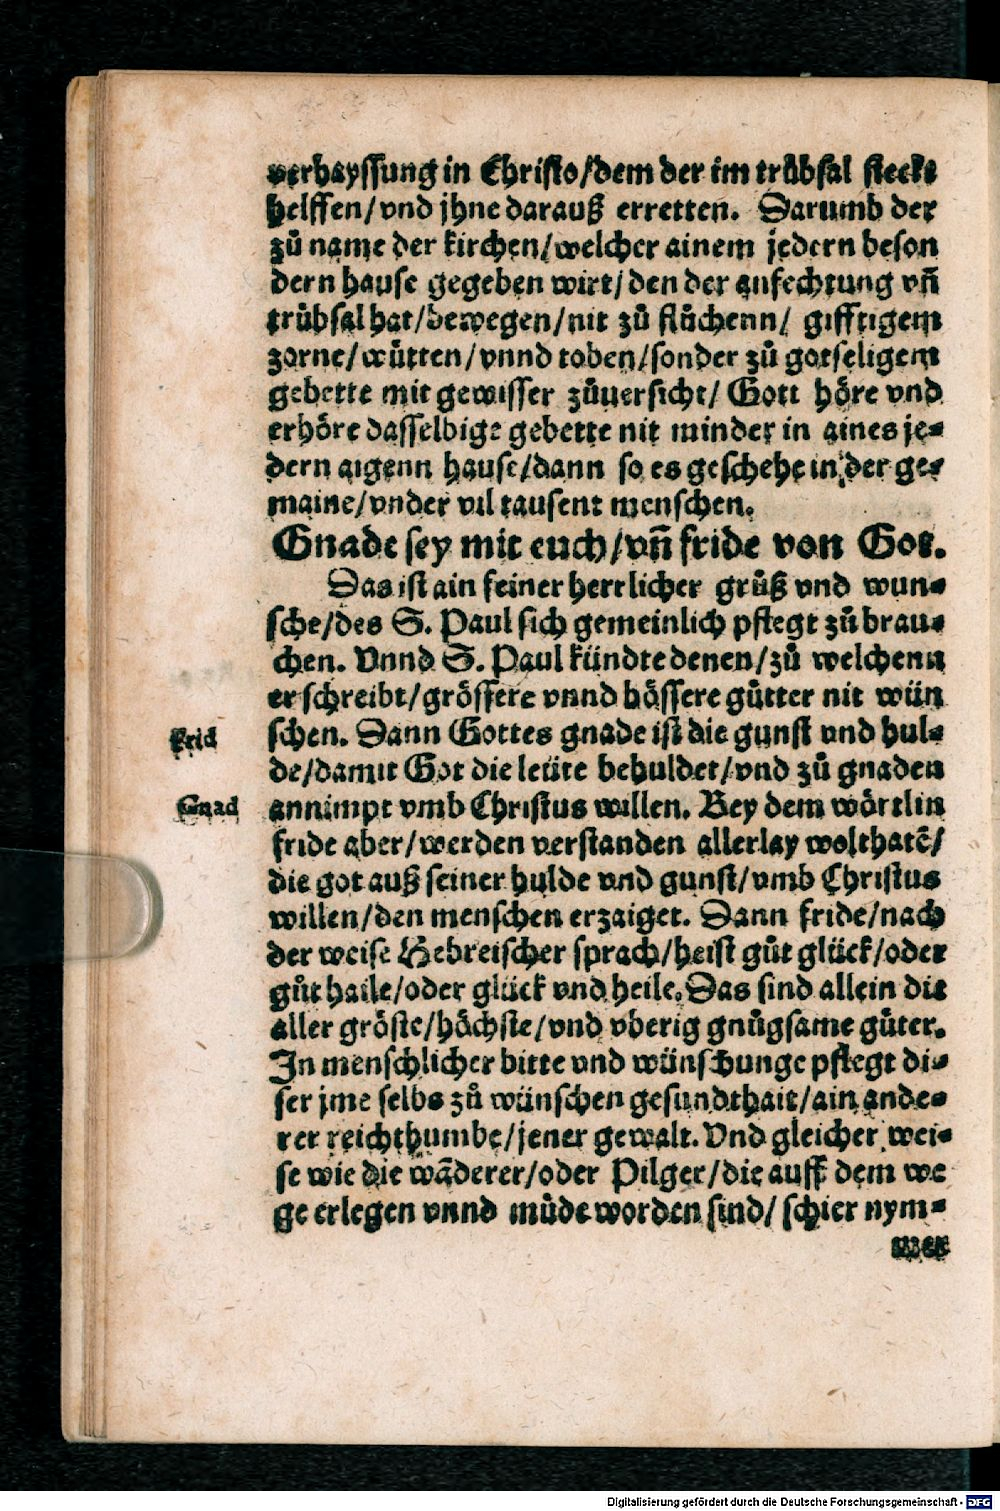 verhayssung in Christo/dem der im trůbsal steckt
helffen/vnd jhne darauß erretten. Darumb der
zů name der kirchen/welcher ainem jedern beson
dern hause gegeben wirt/den der anfechtung vñ
trübsal hat/bewegen/nit zů flůchenn/ gifftigem
zorne/wütten/vnnd toben/sonder zů gotseligem
gebette mit gewisser zůuersicht/ Gott höre vnd
erhöre dasselbige gebette nit minder in aines je=
dern aigenn hause/dann so es geschehe in der ge=
maine/vnder vil tausent menschen.
Gnade sey mit euch/vñ fride von Got.
Das ist ain feiner herrlicher grůß vnd wun=
sche/des S. Paul sich gemeinlich pflegt zů brau=
chen. Vnnd S. Paul kündte denen/zů welchenn
er schreibt/grössere vnnd bössere gütter nit wün
schen. Dann Gottes gnade ist die gunst vnd hul=
Frid
de/damit Got die leüte behuldet/vnd zů gnaden
annimpt vmb Christus willen. Bey dem wörtlin
Gnad
fride aber/werden verstanden allerlay wolthatẽ/
die got auß seiner hulde vnd gunst/vmb Christus
willen/den menschen erzaiget. Dann fride/nach
der weise Hebreischer sprach/heist gůt glück/oder
gůt haile/oder glück vnd heile. Das sind allein die
aller gröste/höchste/vnd vberig gnůgsame güter.
In menschlicher bitte vnd wünschunge pflegt di=
ser jme selbs zů wünschen gesundthait/ain ande=
rer reichthumbe/jener gewalt. Vnd gleicher wei=
se wie die wãderer/oder Pilger/die auff dem we
ge erlegen vnnd müde worden sind/ schier nym=
mer
Digitalisierung gefördert durch die Deutsche Forschungsgemeinschaft - DFG